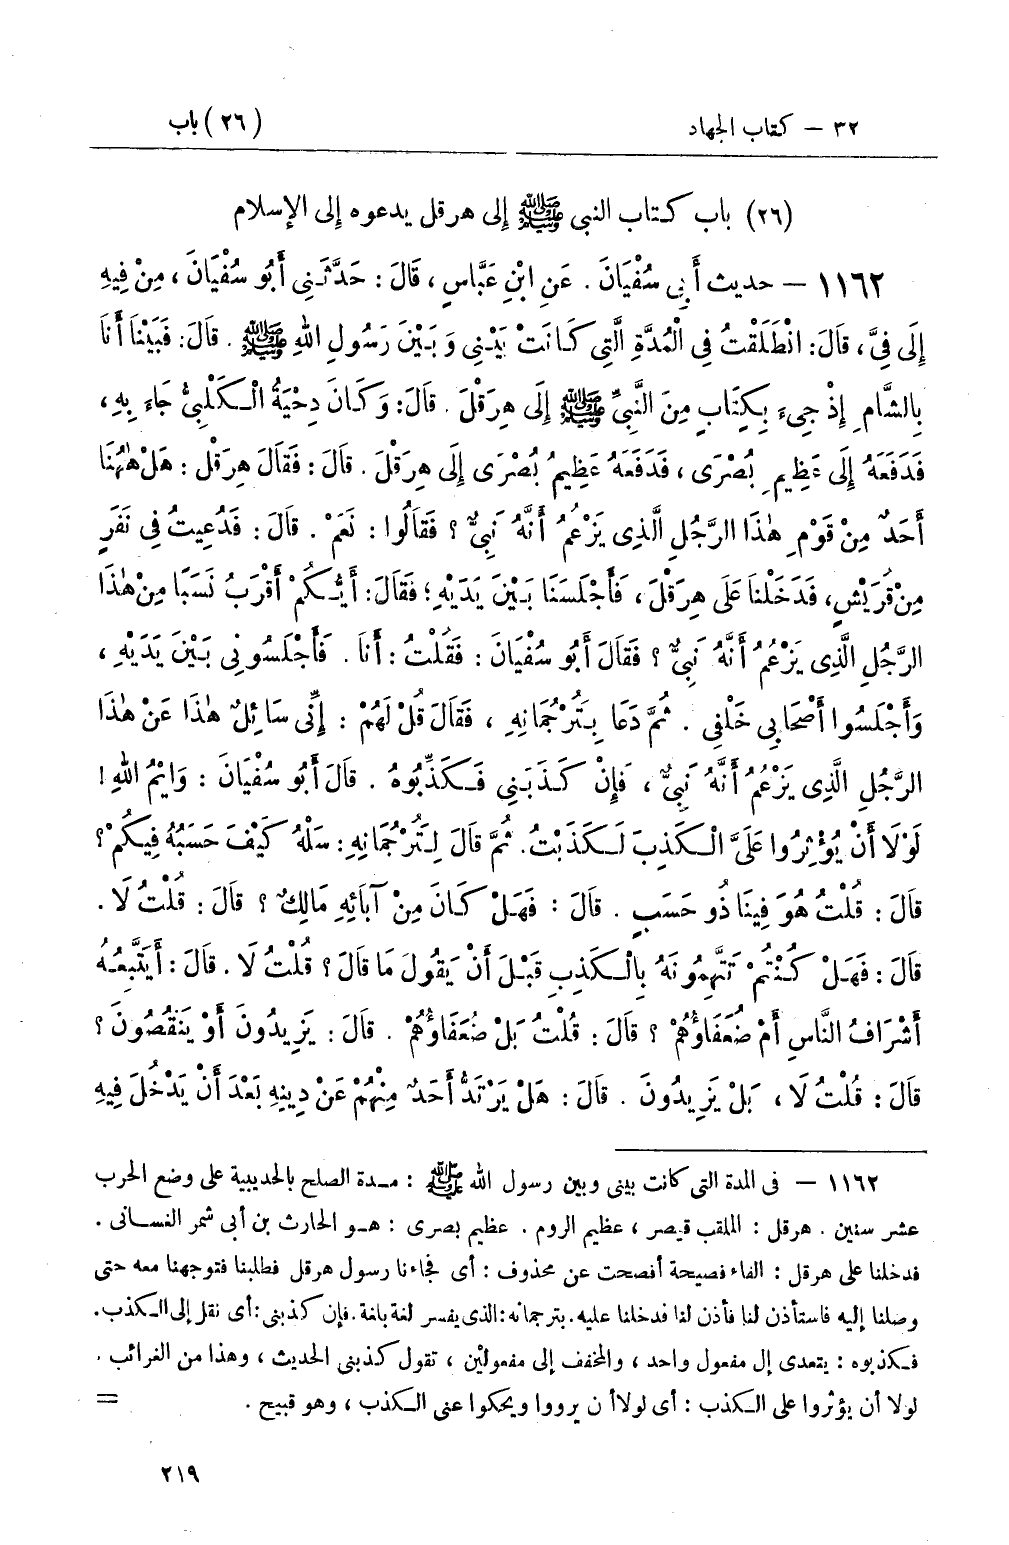 ٣٢ – كتاب الجهاد
(٢٦) باب
(٢٦) باب كتاب النبي ﷺ إلى هرقل يدعوه إلى الإسلام
١١٦٢ – حديث أَبِي سُفْيَانَ . عَنِ ابْنِ عَبَّاسٍ ، قَالَ : حَدَّثَنِي أَبُو سُفْيَانَ ، مِنْ فِيهِ
إِلَى فِيَّ ، قَالَ : انْطَلَقْتُ فِي الْمُدَّةِ الَّتِي كَانَتْ بَيْنِي وَبَيْنَ رَسُولِ اللهِ ﷺ . قَالَ : فَبَيْنَا أَنَا
بِالشَّامِ إِذْ جِيءَ بِكِتَابٍ مِنَ النَّبِيِّ ﷺ إِلَى هِرَقْلَ . قَالَ : وَكَانَ دِحْيَةُ الْكَلْبِيُّ جَاءَ بِهِ ،
فَدَفَعَهُ إِلَى عَظِيمِ بُصْرَى ، فَدَفَعَهُ عَظِيمُ بُصْرَى إِلَى هِرَقْلَ . قَالَ : فَقَالَ هِرَقْلُ : هَلْ هٰهُنَا
أَحَدٌ مِنْ قَوْمِ هٰذَا الرَّجُلِ الَّذِي يَزْعُمُ أَنَّهُ نَبِيٌّ ؟ فَقَالُوا : نَعَمْ . قَالَ : فَدُعِيتُ فِي نَفَرٍ
مِنْ قُرَيْشٍ ، فَدَخَلْنَا عَلَى هِرَقْلَ ، فَأَجْلَسَنَا بَيْنَ يَدَيْهِ ؛ فَقَالَ : أَيُّكُمْ أَقْرَبُ نَسَبًا مِنْ هٰذَا
الرَّجُلِ الَّذِي يَزْعُمُ أَنَّهُ نَبِيٌّ ؟ فَقَالَ أَبُو سُفْيَانَ : فَقُلْتُ : أَنَا . فَأَجْلَسُونِي بَيْنَ يَدَيْهِ ،
وَأَجْلَسُوا أَصْحَابِي خَلْفِي . ثُمَّ دَعَا بِتَرْجُمَانِهِ ، فَقَالَ قُلْ لَهُمْ : إِنِّي سَائِلٌ هٰذَا عَنْ هٰذَا
الرَّجُلِ الَّذِي يَزْعُمُ أَنَّهُ نَبِيٌّ ، فَإِنْ كَذَبَنِي فَكَذِّبُوهُ . قَالَ أَبُو سُفْيَانَ : وَايْمُ اللهِ !
لَوْلَا أَنْ يُؤْثِرُوا عَلَيَّ الْكَذِبَ لَكَذَبْتُ . ثُمَّ قَالَ لِتَرْجُمَانِهِ : سَلْهُ كَيْفَ حَسَبُهُ فِيكُمْ ؟
قَالَ : قُلْتُ هُوَ فِينَا ذُو حَسَبٍ . قَالَ : فَهَلْ كَانَ مِنْ آبَائِهِ مَالِكٌ ؟ قَالَ : قُلْتُ لَا .
قَالَ : فَهَلْ كُنْتُمْ تَتَّهِمُونَهُ بِالْكَذِبِ قَبْلَ أَنْ يَقُولَ مَا قَالَ ؟ قُلْتُ لَا . قَالَ : أَيَتَّبِعُهُ
أَشْرَافُ النَّاسِ أَمْ ضُعَفَاؤُهُمْ ؟ قَالَ : قُلْتُ بَلْ ضُعَفَاؤُهُمْ . قَالَ : يَزِيدُونَ أَوْ يَنْقُصُونَ ؟
قَالَ : قُلْتُ لَا ، بَلْ يَزِيدُونَ . قَالَ : هَلْ يَرْتَدُّ أَحَدٌ مِنْهُمْ عَنْ دِينِهِ بَعْدَ أَنْ يَدْخُلَ فِيهِ
١١٦٢ – فى المدة التى كانت بينى وبين رسول الله ﷺ : مدة الصلح بالحديبية على وضع الحرب
عشر سنين . هرقل : الملقب قيصر ، عظيم الروم . عظيم بصرى : هو الحارث بن أبى شمر الغسانى .
فدخلنا على هرقل : الفاء فصيحة أفصحت عن محذوف : أى فجاءنا رسول هرقل فطلبنا فتوجهنا معه حتى
وصلنا إليه فاستأذن لنا فأذن لنا فدخلنا عليه . بترجمانه : الذى يفسر لغة بلغة . فإن كذبنى : أى نقل إلى الكذب .
فكذبوه : يتعدى إل مفعول واحد ، والمخفف إلى مفعولين ، تقول كذبنى الحديث ، وهذا من الغرائب .
لولا أن يؤثروا على الكذب : أى لولا أن يرووا ويحكوا عنى الكذب ، وهو قبيح . =
٢١٩